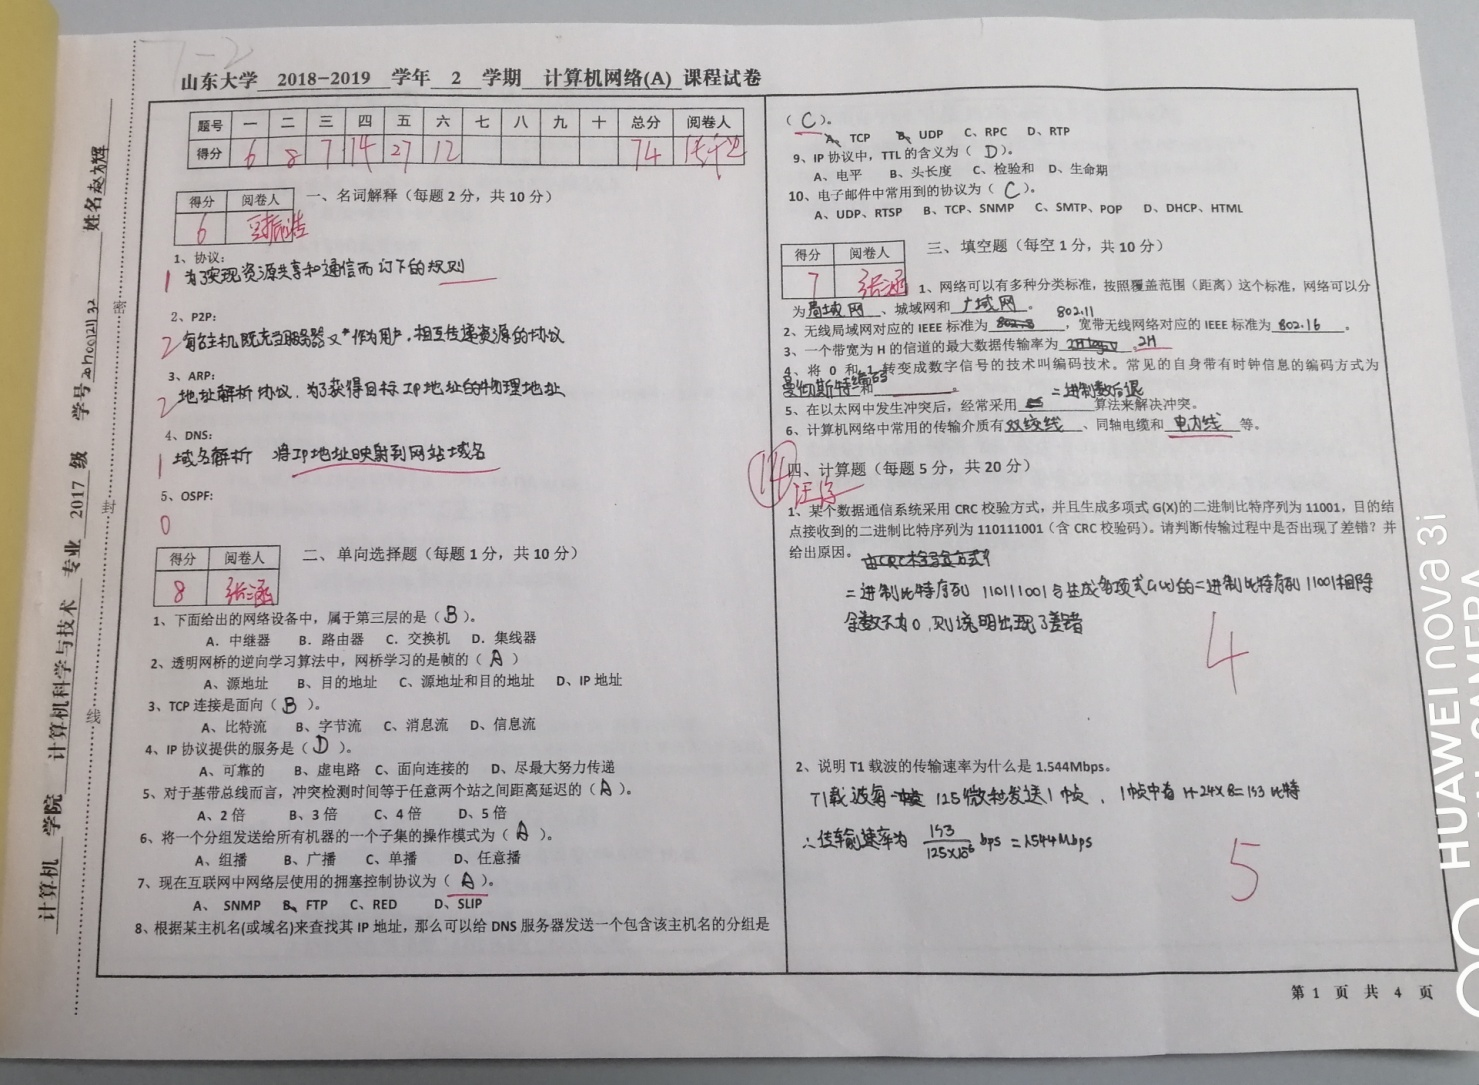 7-2
山东大学 2018-2019 学年 2 学期 计算机网络(A) 课程试卷
题号 一 二 三 四 五 六 七 八 九 十 总分 阅卷人
得分 6 8 7 14 27 12 74
得分 阅卷人
6
一、名词解释（每题 2 分，共 10 分）
1、协议：
1 为了实现资源共享和通信而订下的规则
2、P2P：
2 每台主机既充当服务器又作为用户，相互传递资源的协议
3、ARP：
2 地址解析协议，为了获得目标IP地址的物理地址
4、DNS：
1 域名解析 将IP地址映射到网站域名
5、OSPF：
0
得分 阅卷人
8 张涵
二、单向选择题（每题 1 分，共 10 分）
1、下面给出的网络设备中，属于第三层的是（ B ）。
A．中继器 B．路由器 C．交换机 D．集线器
2、透明网桥的逆向学习算法中，网桥学习的是帧的（ A ）
A、源地址 B、目的地址 C、源地址和目的地址 D、IP 地址
3、TCP 连接是面向（ B ）。
A、比特流 B、字节流 C、消息流 D、信息流
4、IP 协议提供的服务是（ D ）。
A、可靠的 B、虚电路 C、面向连接的 D、尽最大努力传递
5、对于基带总线而言，冲突检测时间等于任意两个站之间距离延迟的（ A ）。
A、2 倍 B、3 倍 C、4 倍 D、5 倍
6、将一个分组发送给所有机器的一个子集的操作模式为（ A ）。
A、组播 B、广播 C、单播 D、任意播
7、现在互联网中网络层使用的拥塞控制协议为（ A ）。
A、SNMP B、FTP C、RED D、SLIP
8、根据某主机名(或域名)来查找其 IP 地址，那么可以给 DNS 服务器发送一个包含该主机名的分组是
（ C ）。
A、TCP B、UDP C、RPC D、RTP
9、IP 协议中，TTL 的含义为（ D ）。
A、电平 B、头长度 C、检验和 D、生命期
10、电子邮件中常用到的协议为（ C ）。
A、UDP、RTSP B、TCP、SNMP C、SMTP、POP D、DHCP、HTML
得分 阅卷人
7 张涵
三、填空题（每空 1 分，共 10 分）
1、网络可以有多种分类标准，按照覆盖范围（距离）这个标准，网络可以分
为 局域网 、城域网和 广域网 。
802.11
2、无线局域网对应的 IEEE 标准为 ，宽带无线网络对应的 IEEE 标准为 802.16 。
3、一个带宽为 H 的信道的最大数据传输率为 2H
4、将 0 和 1 转变成数字信号的技术叫编码技术。常见的自身带有时钟信息的编码方式为
曼彻斯特编码 和 。
二进制数后退
5、在以太网中发生冲突后，经常采用 算法来解决冲突。
6、计算机网络中常用的传输介质有 双绞线 、同轴电缆和 电力线 等。
14
四、计算题（每题 5 分，共 20 分）
1、某个数据通信系统采用 CRC 校验方式，并且生成多项式 G(X)的二进制比特序列为 11001，目的结
点接收到的二进制比特序列为 110111001（含 CRC 校验码）。请判断传输过程中是否出现了差错？并
给出原因。
二进制比特序列 110111001与生成多项式G(x)的二进制比特序列 11001相除
余数不为0，则说明出现了差错
4
2、说明 T1 载波的传输速率为什么是 1.544Mbps。
T1载波每 125微秒发送1帧，1帧中有 1+24×8=193 比特
∴传输速率为 193/125×10⁻⁶ bps = 1.544Mbps
5
第 1 页 共 4 页
计算机 学院 计算机科学与技术 专业 2017 级 学号 姓名
密
封
线
HUAWEI nova 3i